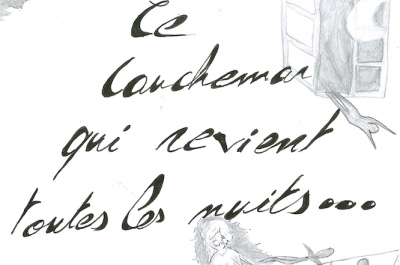 Ce
cauchemar
qui revient
toutes les nuits...